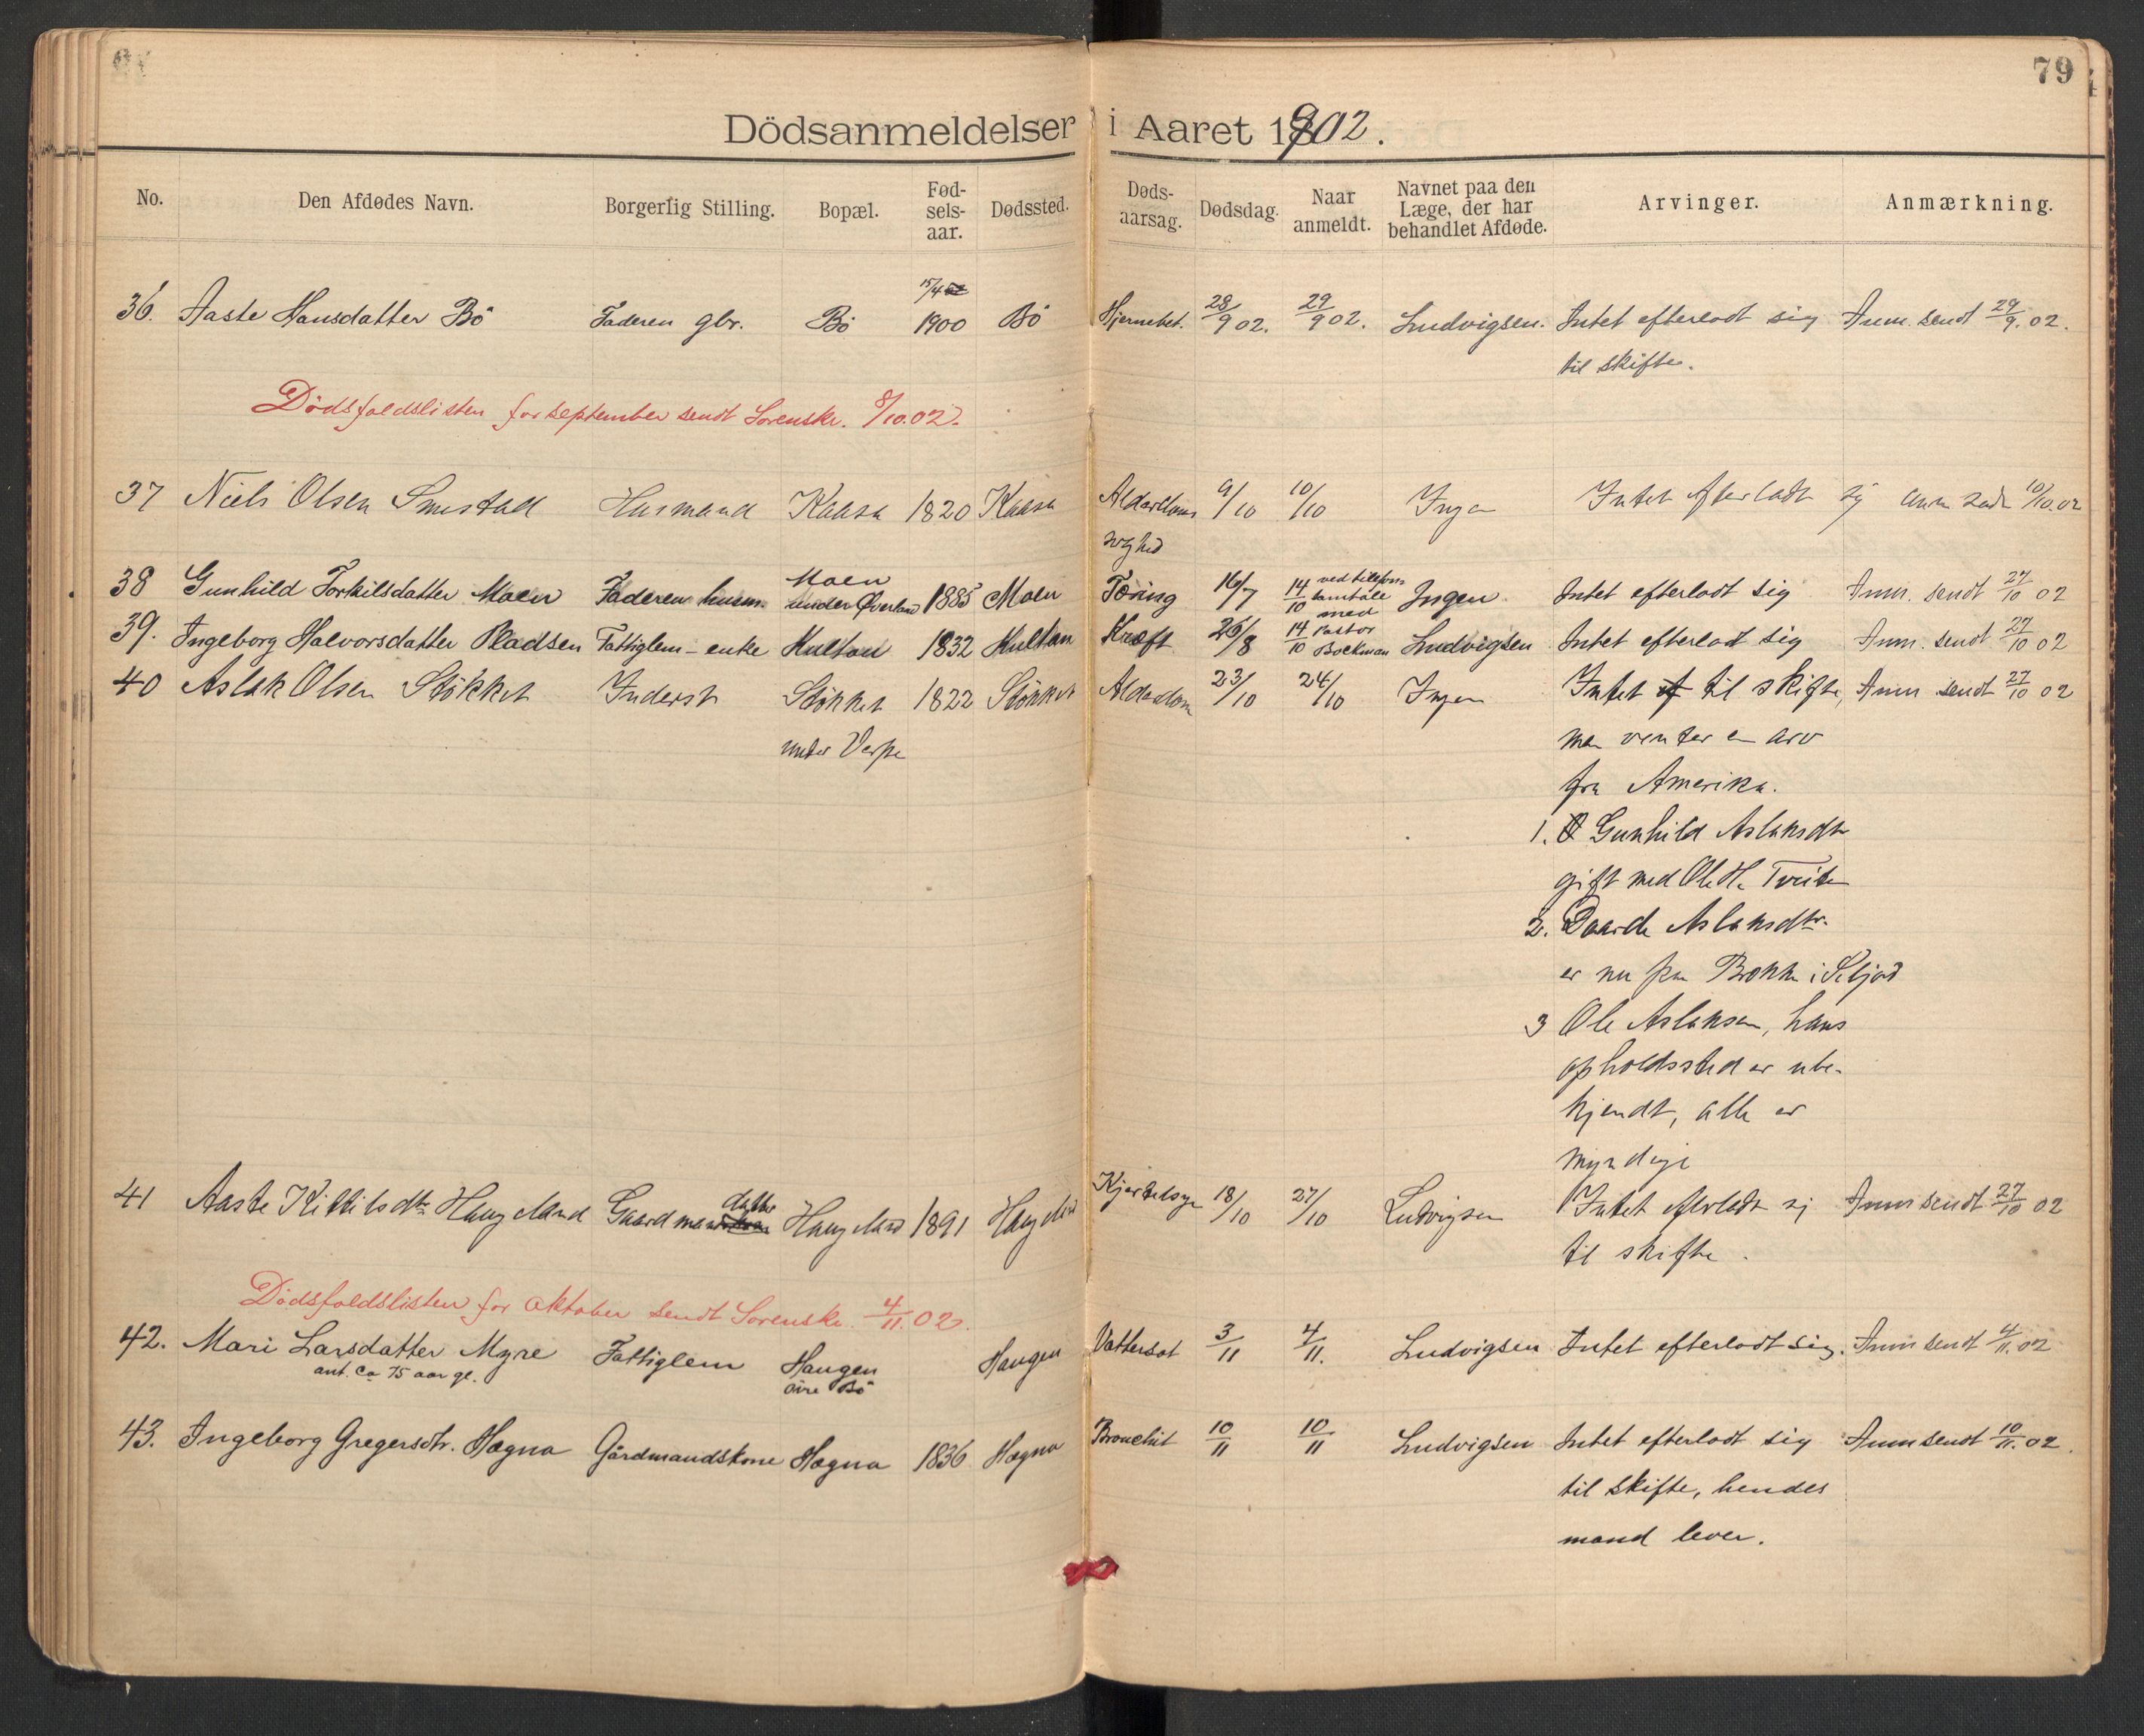 79
Dödsanmeldelser i Aaret 1902.
No. Den Afdødes Navn. Borgerlig Stilling. Bopæl. Fød-sels-aar. Dødssted. Døds-aarsag. Dødsdag. Naar anmeldt. Navnet paa den Læge, der har behandlet Afdøde. Arvinger. Anmærkning.
15/4
36. Aaste Hansdatter Bö Faderen gbr. Bö 1900 Bö Hjernebet. 28/9 02. 29/9 02. Ludvigsen. Intet efterladt sig Anm. sendt 29/9. 02.
til skifte.
Dödsfaldslisten for september sendt Sorenskr. 8/10.02.
37 Niels Olsen Smestad Husmand Kaasa 1820 Kaasa Alderdoms 9/10 10/10 Ingen Intet efterladt sig Anm sendt 10/10.02
svaghed
38 Gunhild Torkilsdatter Moen Faderen husm. Moen under Øverland 1885 Moen Tæring 16/7 14/10 ved telefonsamtale med Ingen. Intet efterladt sig Anm. sendt 27/10 02
39. Ingeborg Halvorsdatter Pladsen Fattiglem - enke Hultan 1832 Hultan Kræft 26/8 14/10 Pastor Bockman Ludvigsen Intet efterladt sig Anm. sendt 27/10 02
40 Aslak Olsen Stökket Inderst Stökket 1822 Stökket Alderdom 23/10 24/10 Ingen Intet til skifte, Anm sendt 27/10 02
under Verpe
men venter en arv
fra Amerika.
1. Gunhild Aslaksdtr
gift med Ole H. Tveiten
2. Daarde Aslaksdtr.
er nu paa i Seljord
3 Ole Aslaksen, hans
opholdssted er ube-
kjendt, alle er
myndige
41 Aaste Kittilsdtr Haugeland Gaardmands datter Haugeland 1891 Haugeland Kjertelsyge 18/10 27/10 Ludvigsen Intet efterladt sig Anm sendt 27/10 02
til skifte.
Dödsfaldslisten for oktober sendt Sorenskr. 4/11.02.
42. Mari Larsdatter Myre Fattiglem Haugen Haugen Vattersot 3/11 4/11. Ludvigsen Intet efterladt sig. Anm sendt 4/11.02
ant. ca 75 aar gl. övre Bö
43. Ingeborg Gregersdtr. Hagna Gårdmandskone Hagna 1836 Hagna Bronchit 10/11 10/11 Ludvigsen Intet efterladt sig Anm sendt 10/11. 02.
til skifte, hendes
mand lever.